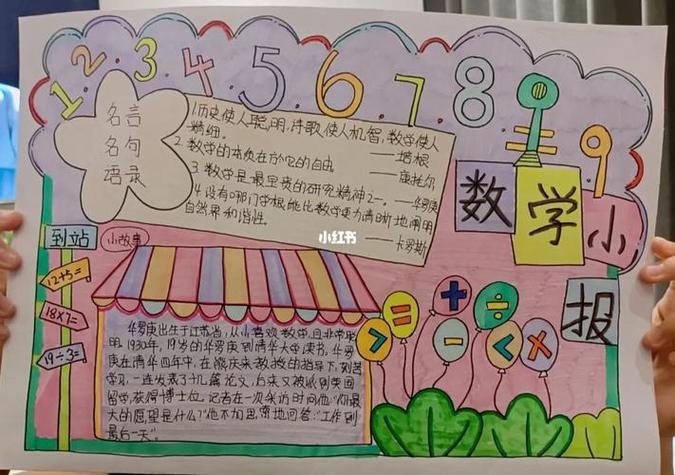 1 2 3 4 5 6 7 8 9
名言
名句
语录
1.历史使人聪明,诗歌使人机智,数学使人
精细。
——培根
2.数学的本质在于它的自由
——康托尔
3.数学是最宝贵的研究精神之一。——华罗庚
4.没有哪门学科能比数学更为清晰地阐明
自然界和谐性。
——卡罗斯
小红书
数学小
报
到站
小故事
12+5=
18×7=
19÷3=
华罗庚出生于江苏省,从小喜欢数学,且非常聪
明.1930年,19岁的华罗庚到清华大学读书,华罗
庚在清华四年中,在熊庆来教授的指导下,刻苦
学习,一连发表了十几篇论文,后来又被派到英国
留学,获得博士位.记者在一次采访时问他:"你最
大的愿望是什么?"他不加思索地回答:"工作到
最后一天"。
> = + ÷
- < ×